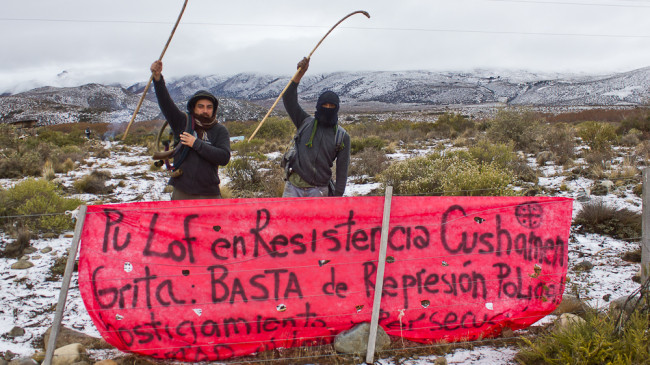 Pu Lof en Resistencia Cushamen
Grita: BASTA de Represión Policial
Hostigamiento